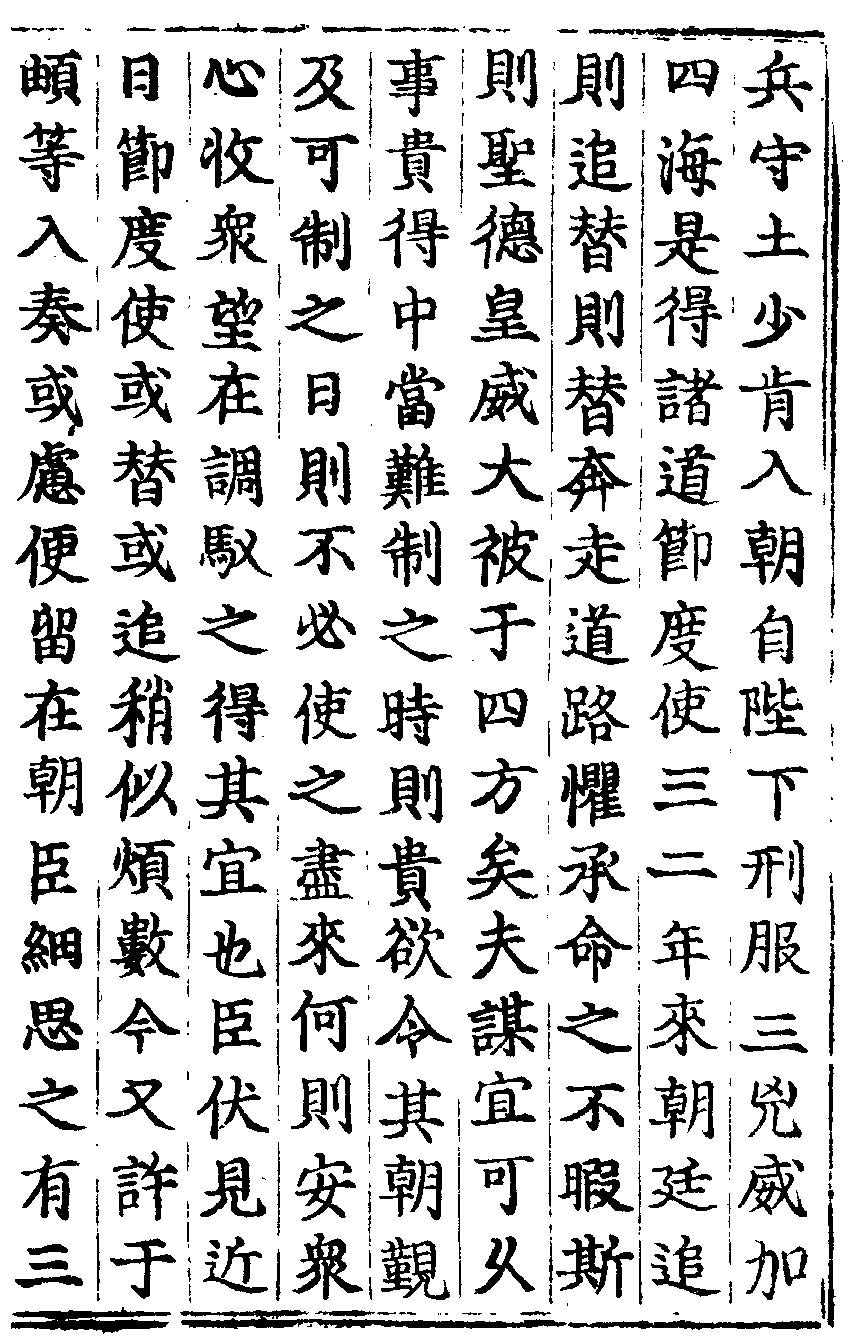 兵守土少肯入朝自陛下刑服三兇威加
四海是得諸道節度使三二年來朝廷追
則追替則替奔走道路懼承命之不暇斯
則聖德皇威大被于四方矣夫謀宜可久
事貴得中當難制之時則貴欲令其朝覲
及可制之日則不必使之盡來何則安衆
心收衆望在調馭之得其宜也臣伏見近
日節度使或替或追稍似煩數今又許于
頔等入奏或慮便留在朝臣細思之有三